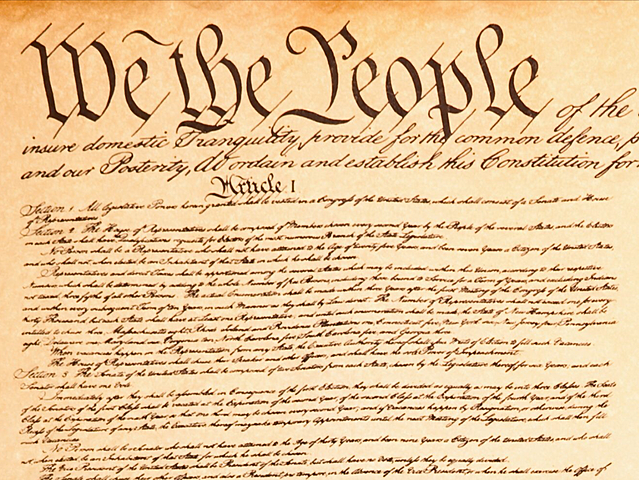 We the People of the
insure domestic Tranquility, provide for the common defence, p
and our Posterity, do ordain and establish this Constitution for
Article I
Section 1 All legislative Powers herein granted shall be vested in a Congress of the United States, which shall consist of a Senate and House
of Representatives.
Section 2 The House of Representatives shall be composed of Members chosen every second Year by the People of the several States, and the Electors
in each State shall have the Qualifications requisite for Electors of the most numerous Branch of the State Legislature.
No Person shall be a Representative who shall not have attained to the Age of twenty five Years, and been seven Years a Citizen of the United States,
and who shall not, when elected, be an Inhabitant of that State in which he shall be chosen.
Representatives and direct Taxes shall be apportioned among the several States which may be included within this Union, according to their respective
Numbers, which shall be determined by adding to the whole Number of free Persons, including those bound to Service for a Term of Years, and excluding Indians
not taxed, three fifths of all other Persons. The actual Enumeration shall be made within three Years after the first Meeting of the Congress of the United States,
and within every subsequent Term of ten Years, in such Manner as they shall by Law direct. The Number of Representatives shall not exceed one for every
thirty Thousand, but each State shall have at Least one Representative; and until such enumeration shall be made, the State of New Hampshire shall be
entitled to chuse three, Massachusetts eight, Rhode Island and Providence Plantations one, Connecticut five, New York six, New Jersey four, Pennsylvania
eight, Delaware one, Maryland six, Virginia ten, North Carolina five, South Carolina five and Georgia three.
When vacancies happen in the Representation from any State, the Executive Authority thereof shall issue Writs of Election to fill such Vacancies.
The House of Representatives shall chuse their Speaker and other Officers; and shall have the sole Power of Impeachment.
Section 3 The Senate of the United States shall be composed of two Senators from each State, chosen by the Legislature thereof, for six Years; and each
Senator shall have one Vote.
Immediately after they shall be assembled in Consequence of the first Election, they shall be divided as equally as may be into three Classes. The Seats
of the Senators of the first Class shall be vacated at the Expiration of the second Year, of the second Class at the Expiration of the fourth Year, and of the third
Class at the Expiration of the sixth Year, so that one third may be chosen every second Year; and if Vacancies happen by Resignation, or otherwise, during the
Recess of the Legislature of any State, the Executive thereof may make temporary Appointments until the next Meeting of the Legislature, which shall then fill
such Vacancies.
No Person shall be a Senator who shall not have attained to the Age of thirty Years, and been nine Years a Citizen of the United States, and who shall
not, when elected, be an Inhabitant of that State for which he shall be chosen.
The Vice President of the United States shall be President of the Senate, but shall have no Vote, unless they be equally divided.
The Senate shall chuse their other Officers, and also a President pro tempore, in the Absence of the Vice President, or when he shall exercise the Office of